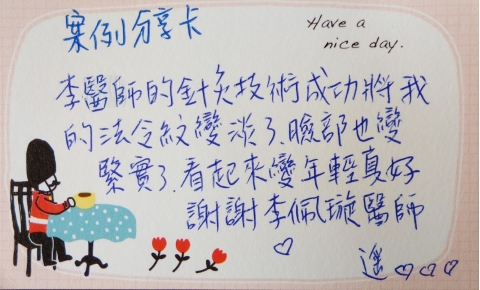 案例分享卡
Have a
nice day.
李醫師的針灸技術成功將我
的法令紋變淡了.臉部也變
緊實了.看起來變年輕真好
謝謝李佩璇醫師
遥